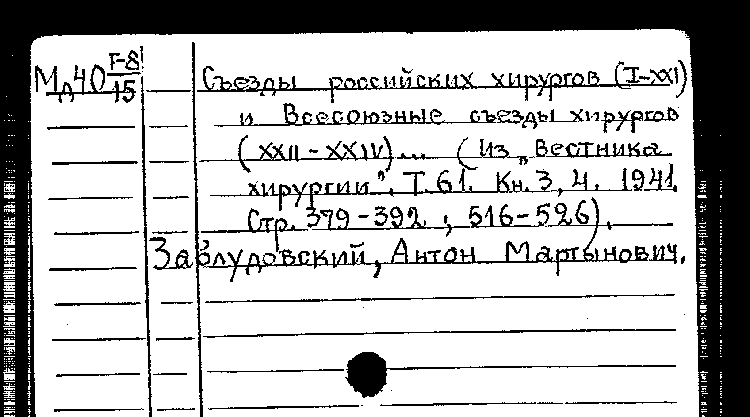 Мд40 F-8/15 Съезды российских хирургов (I-XXI)
и Всесоюзные съезды хирургов
(XXII-XXIV)... (Из „Вестника
хирургии". Т. 61. Кн. 3, 4. 1941.
Стр. 379-392 ; 516-526).
Заблудовский, Антон Мартынович.